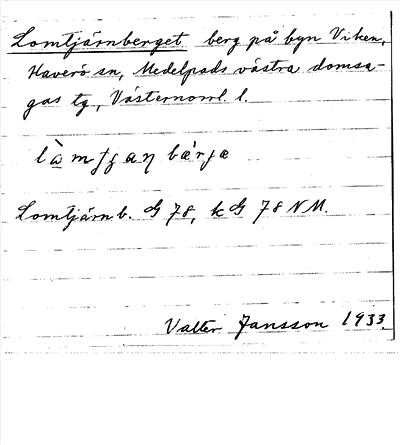 Lomtjärnberget berg på byn Viken,
Haverö sn, Medelpads västra domsa-
gas tg., Västernorrl. l.
Lomtjärnb. G 78, k G 78 NM.
Valter Jansson 1933.